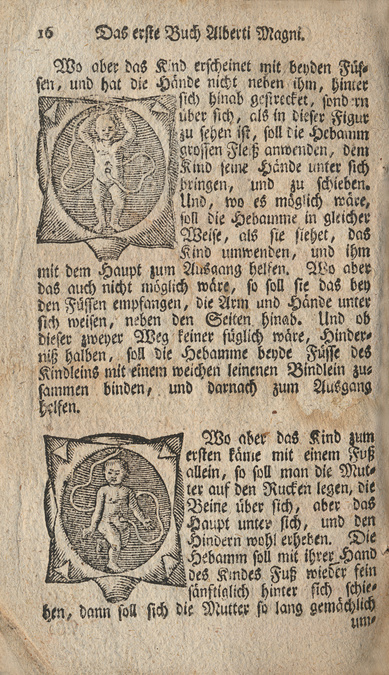 16 Das erste Buch Alberti Magni.
Wo aber das Kind erscheinet mit beyden Füs-
sen, und hat die Hände nicht neben ihm, hinter
sich hinab gestrecket, sondern
über sich, als in dieser Figur
zu sehen ist, soll die Hebamm
grossen Fleß anwenden, dem
Kind seine Hände unter sich
bringen, und zu schieben.
Und, wo es möglich wäre,
soll die Hebamme in gleicher
Weise, als sie siehet, das
Kind umwenden, und ihm
mit dem Haupt zum Ausgang helfen. Wo aber
das auch nicht möglich wäre, so soll sie das bey
den Füssen empfangen, die Arm und Hände unter
sich weisen, neben den Seiten hinab. Und ob
dieser zweyer Weg keiner füglich wäre, Hinder-
niß halben, soll die Hebamme beyde Füsse des
Kindleins mit einem weichen leinenen Bindlein zu-
sammen binden, und darnach zum Ausgang
helfen.
Wo aber das Kind zum
ersten käme mit einem Fuß
allein, so soll man die Mut-
ter auf den Rucken legen, die
Beine über sich, aber das
Haupt unter sich, und den
Hindern wohl erheben. Die
Hebamm soll mit ihrer Hand
des Kindes Fuß wieder fein
sänftiglich hinter sich schie-
ben, dann soll sich die Mutter so lang gemächlich
um-